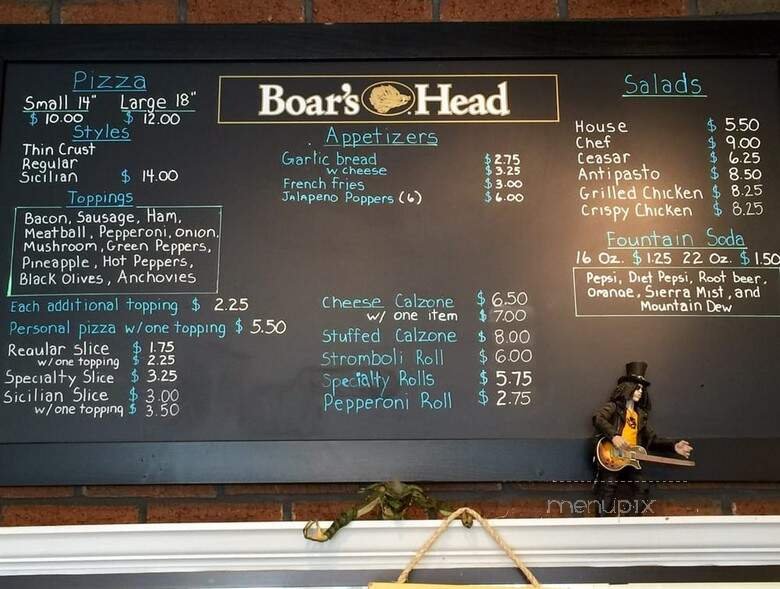 Pizza
Small 14" Large 18"
$ 10.00 $ 12.00
Styles
Thin Crust
Regular
Sicilian $ 14.00
Toppings
Bacon, Sausage, Ham,
Meatball, Pepperoni, onion,
Mushroom, Green Peppers,
Pineapple, Hot Peppers,
Black Olives, Anchovies
Each additional topping $ 2.25
Personal pizza w/one topping $ 5.50
Regular Slice $ 1.75
w/one topping $ 2.25
Specialty Slice $ 3.25
Sicilian Slice $ 3.00
w/one topping $ 3.50
Boar's Head
Appetizers
Garlic bread $ 2.75
w cheese $ 3.25
French fries $ 3.00
Jalapeno Poppers (6) $ 6.00
Cheese Calzone $ 6.50
w/ one item $ 7.00
Stuffed Calzone $ 8.00
Stromboli Roll $ 6.00
Specialty Rolls $ 5.75
Pepperoni Roll $ 2.75
Salads
House $ 5.50
Chef $ 9.00
Ceasar $ 6.25
Antipasto $ 8.50
Grilled Chicken $ 8.25
Crispy Chicken $ 8.25
Fountain Soda
16 Oz. $ 1.25 22 Oz. $ 1.50
Pepsi, Diet Pepsi, Root beer,
Orange, Sierra Mist, and
Mountain Dew
menupix